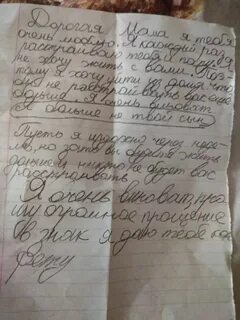 Дорогая Мама я тебя
очень люблю. Я каждый раз
расстраиваю тебя и папу. Я
не хочу жить с вами. Поэ
тому я хочу уйти из дома что
бы не расстраивать вас еще
больше. Я очень виноват
я больше не твой сын
Пусть я через неде
лю, но хоть вы будите жить
дальше и никто не будет вас
расстраивать
Я очень виноват, про
шу огромное прощение
в знак я даю тебе кон
фету